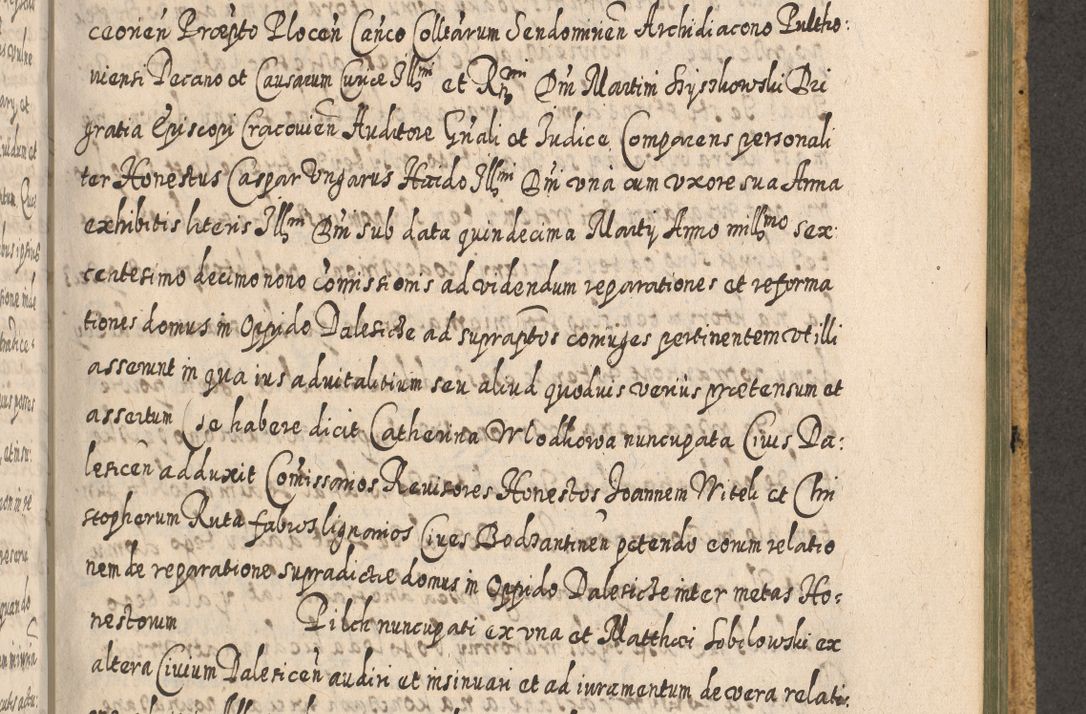 ceonen̄ Præpto Plocen̄ Can̄co Colltarum Sendomiren̄ Archidiacono Pultho:
viensi Decano et Causarum Curiæ Illmi et Rmi Dni Martini Szyszkowski Dei
gratia Episcopi Cracovien̄ Auditore Gn̄ali et Iudice, Comparens personali
ter Honestus Caspar Ungarus Haido Illmi Dni una cum uxore sua Anna
exhibitis literis Illmi Dni sub data quindecima Martij Anno millmo sex:
centesimo decimo nono com̄issionis ad videndum reparationes et reforma
tiones domus in Oppido Dalesicze ad supraptos coniuges pertinentem ut illi
asserunt in qua ius advitalitium seu aliud quodvis verius prætensum et
assertum (se habere dicit Catherina Wlodkowa nuncupata Civis Da:
lesicen̄ adduxit Com̄issarios Revisores Honestos Joannem Witeli et Chri
stopherum Ruta fabros lignarios Cives Bodzantinen̄ petendo eorum relatio
nem de reparatione supradictæ domus in Oppido Dalesicze inter metas Ho:
nestorum Pilch nuncupati ex una et Matthæi Sobilowski ex
altera Civium Dalesicen̄ audiri et insinuari et ad iuramentum de vera relati: